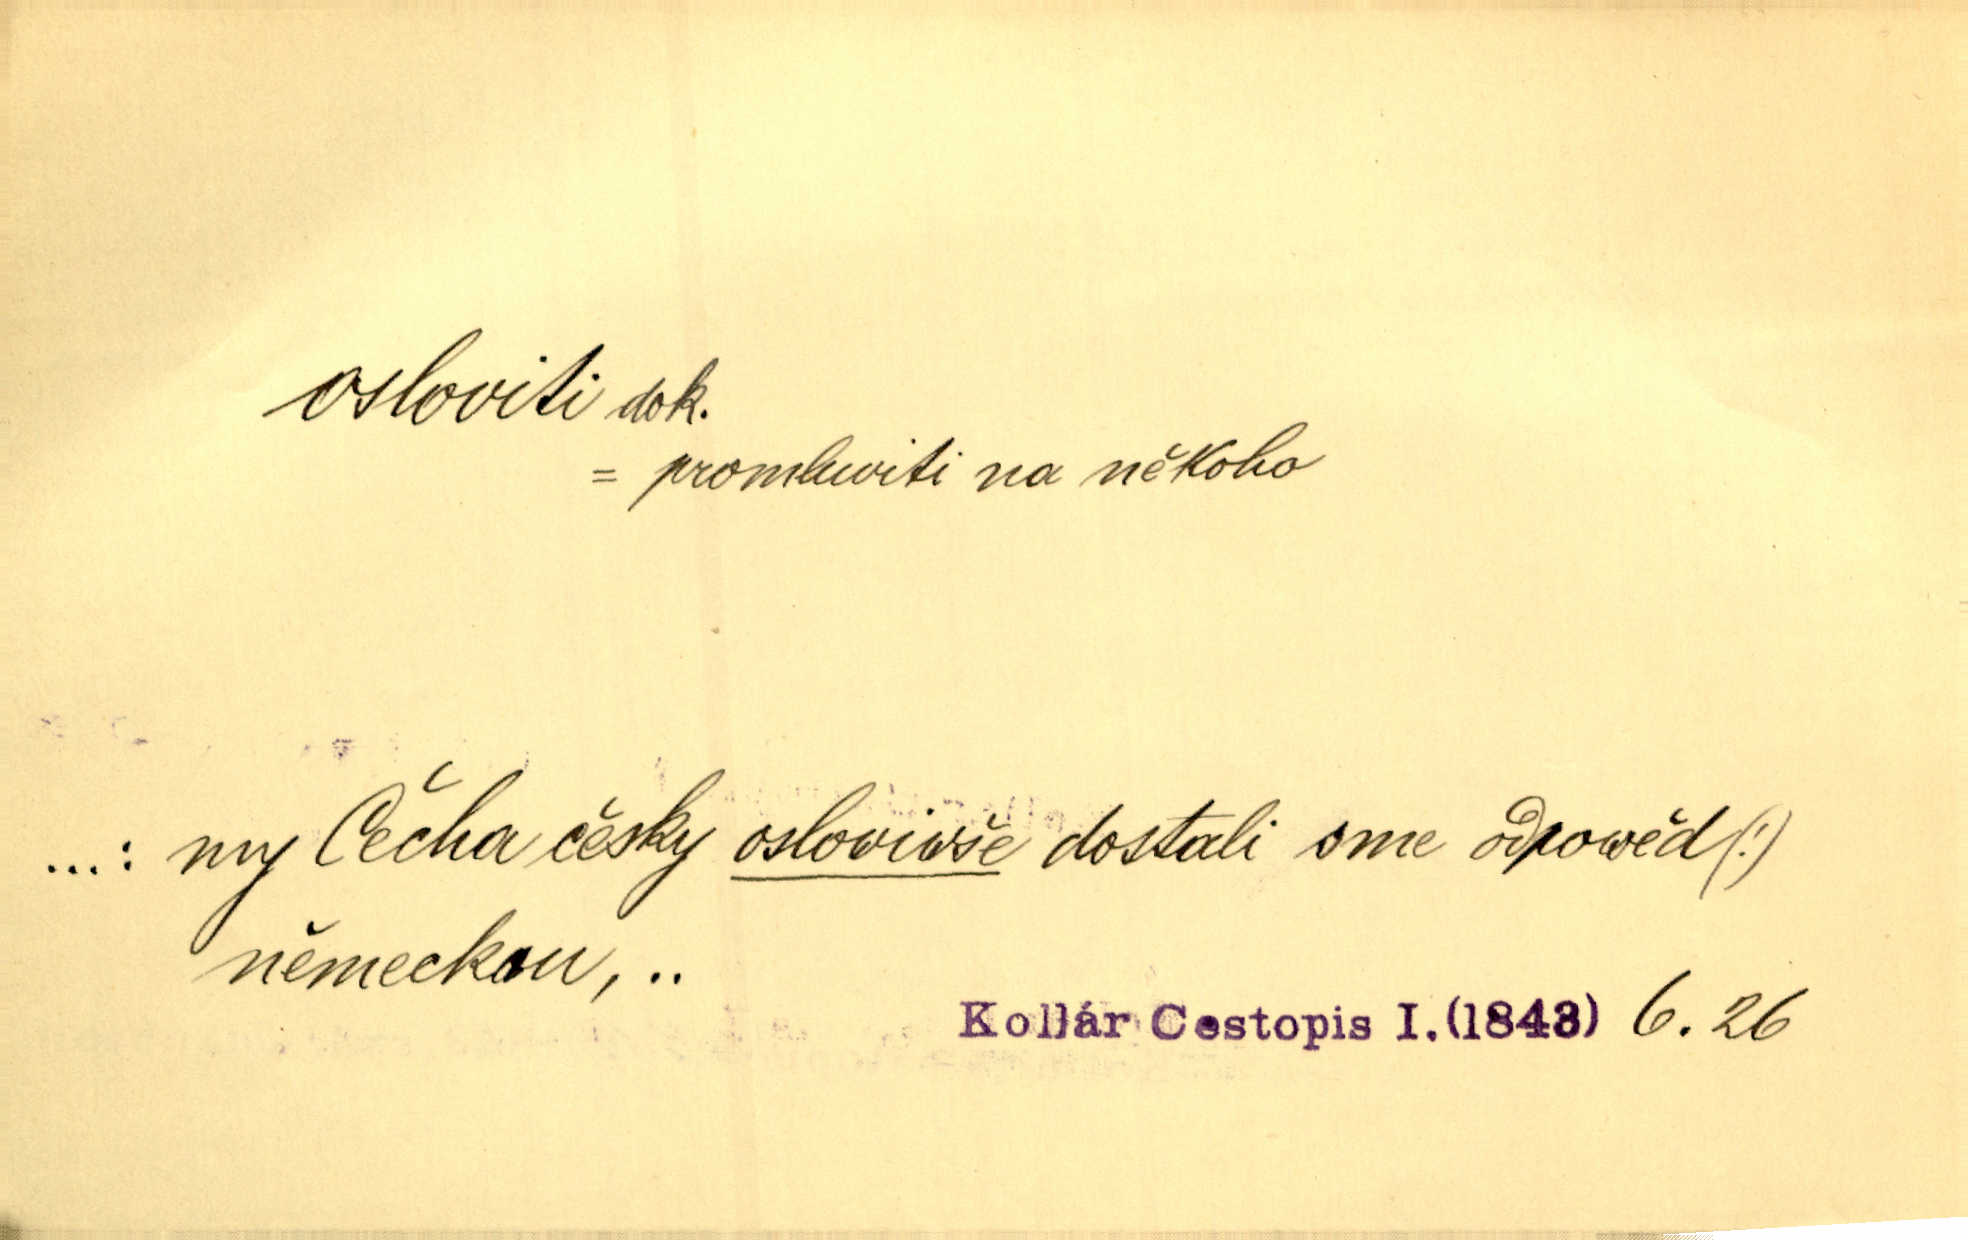 osloviti dok.
= promluviti na někoho
...: my Čecha česky oslowiwše dostali sme odpowěd (!)
německou, ..
Kollár Cestopis I.(1843) 6. 26